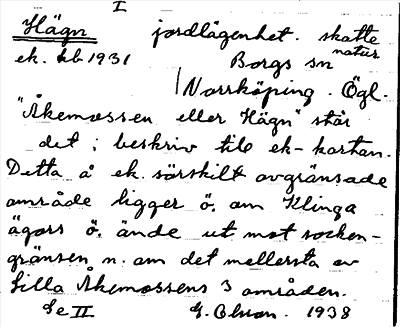 I
Hägn jordlägenhet. skatte
natur
ek. kb 1931 Borgs sn
Norrköping. Ögl.
"Åkemossen eller Hägn" står
det i beskriv till ek-kartan.
Detta å ek. särskilt avgränsade
område ligger ö. om Klinga
ägors ö. ände ut mot socken-
gränsen n. om det mellersta av
Lilla Åkemossens 3 områden.
Se II G. Olson. 1938